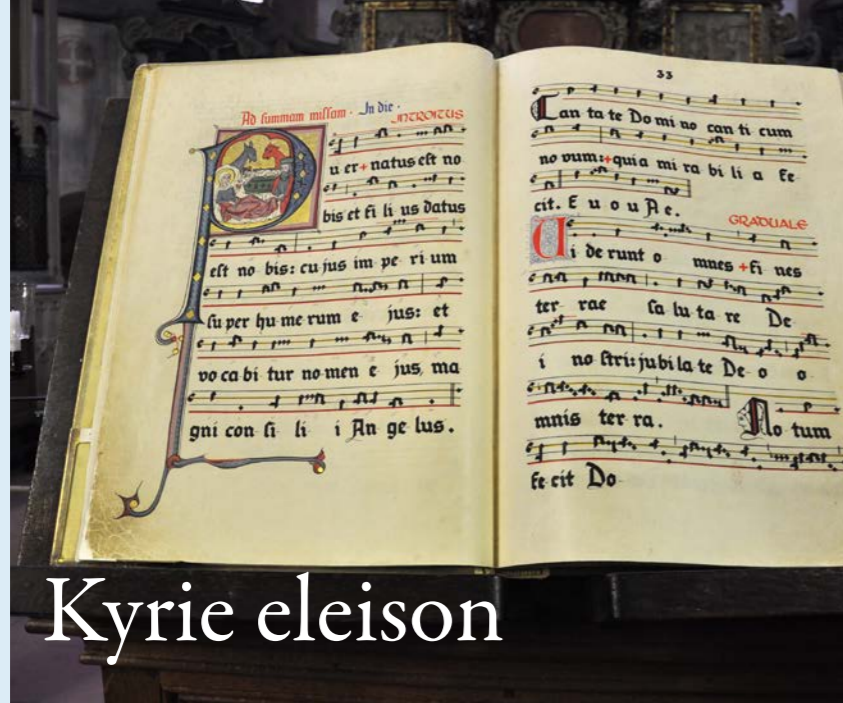 Ad summam missam · In die ·
INTROITUS
P
u er + natus est no
bis et fi li us datus
est no bis: cu jus im pe ri um
su per hu me rum e jus: et
vo ca bi tur no men e jus, ma
gni con si li i An ge lus.
33
Can ta te Do mi no can ti cum
no vum: + quia mi ra bi li a fe
cit. E u o u A e.
GRADUALE
Vi de runt o mnes + fi nes
ter rae sa lu ta re De
i no stri: jubi la te De o o
mnis ter ra. No tum
fe cit Do
Kyrie eleison